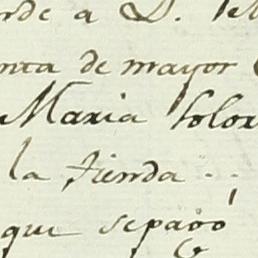 rde a D.
nta de mayor
Maria Solor
la tienda ..
que sepagó